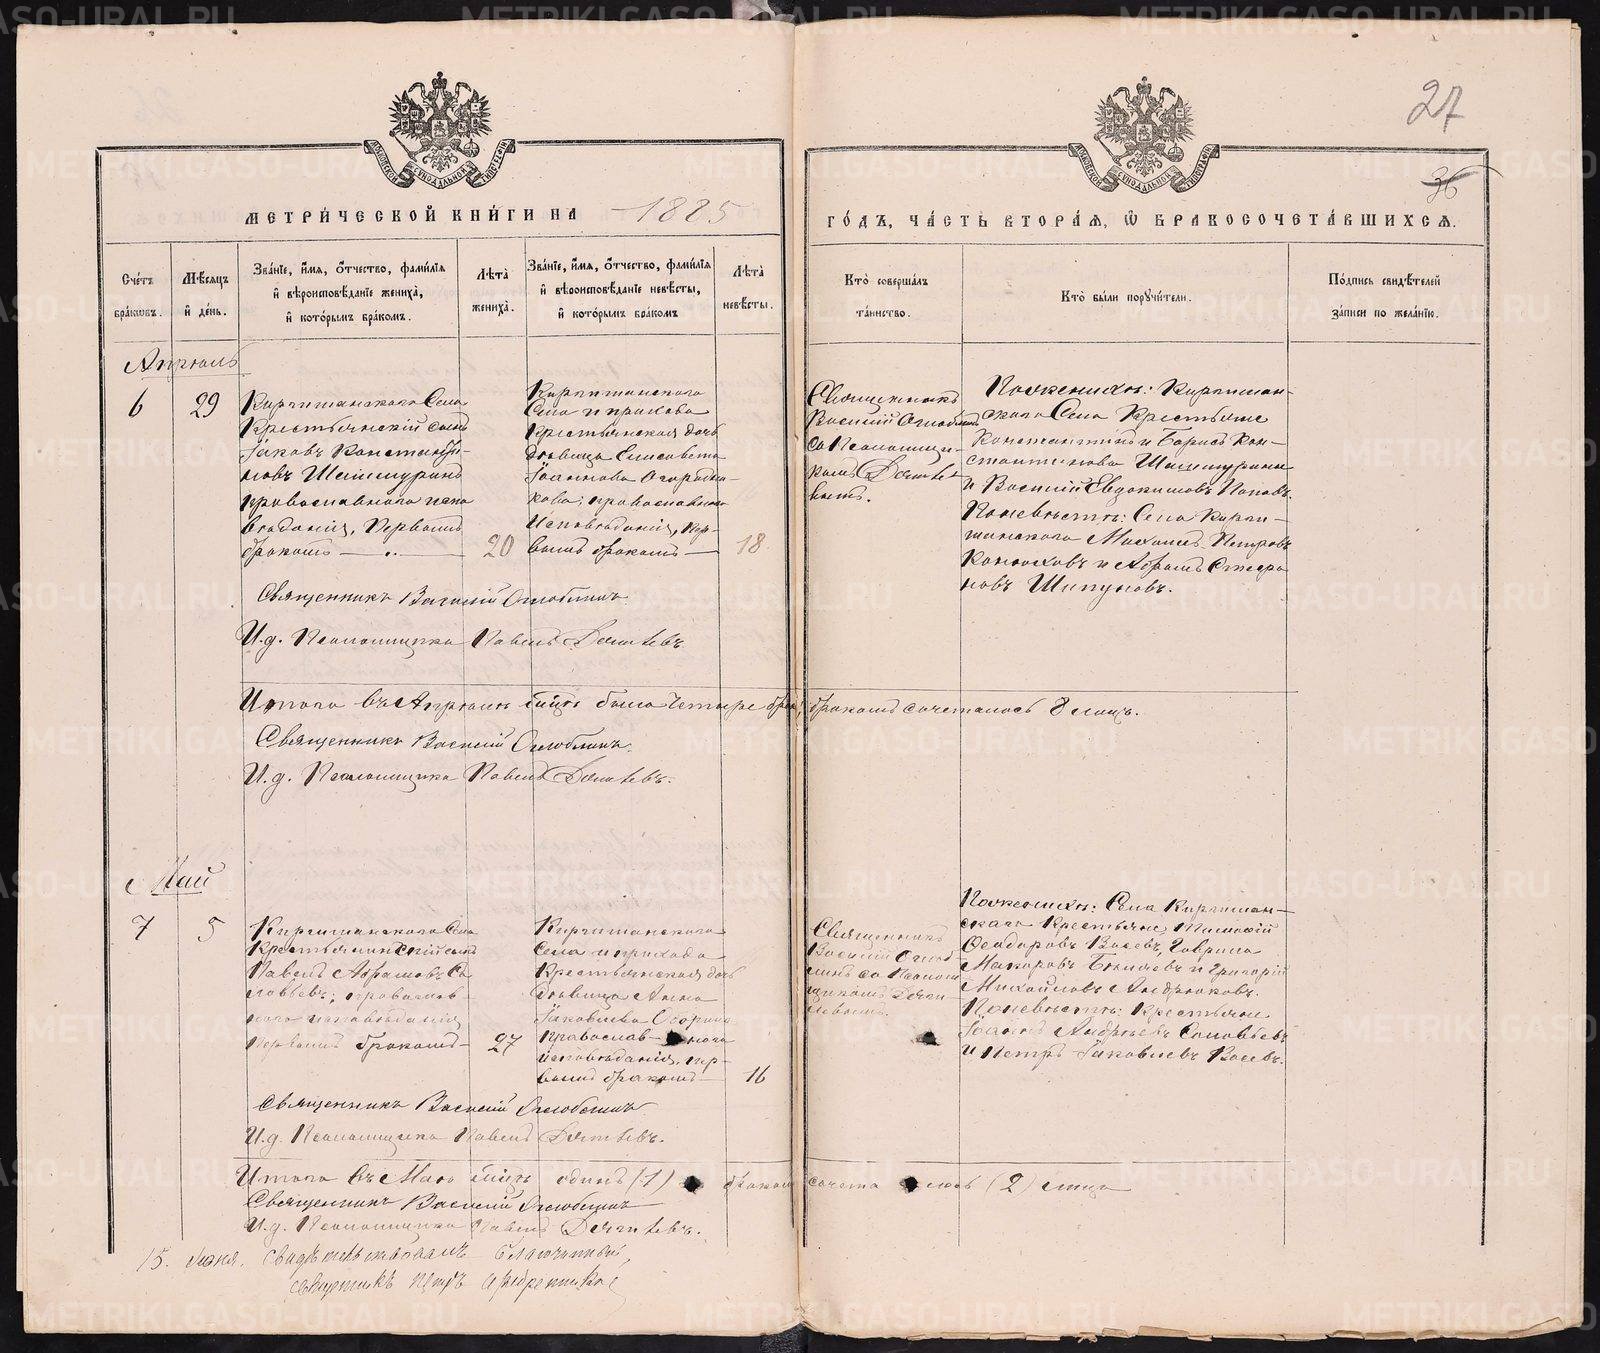 27
36
МОСКОВСКОЙ СѴНОДАЛЬНОЙ ТИПОГРАФІИ
МОСКОВСКОЙ СѴНОДАЛЬНОЙ ТИПОГРАФІИ
МЕТРИ́ЧЕСКОЙ КНИ́ГИ НА 1885
ГО́ДЪ, ЧА́СТЬ ВТОРА́Я, Ѿ БРАКОСОЧЕТА́ВШИХСЯ.
Сче́тъ бра́ковъ.
Мѣ́сяцъ и҆ де́нь.
Зва́нїе, и҆́мя, о҆́тчество, фами́лїя
и҆ вѣроисповѣ́данїе жениха̀,
и҆ кото́рымъ бра́комъ.
Лѣта̀ жениха̀.
Зва́нїе, и҆́мя, о҆́тчество, фами́лїя
и҆ вѣроисповѣ́данїе невѣ́сты,
и҆ кото́рымъ бра́комъ
Лѣта̀ невѣ́сты.
Кто̀ соверша́лъ
та́инство.
Кто̀ бы́ли порꙋчи́тели.
По́дпись свидѣ́телей
за́писи по жела́нїю.
Апрѣль
6
29
Киргишанского Села
Крестьянскій сынъ
Іаковъ Константи-
новъ Шешмуринъ
православнаго испо
вѣданія, Первымъ
бракомъ
20
Киргишанского
Села и прихода
Крестьянская дочь
дѣвица Елисавета
Іоаннова Огородни-
кова; православнаго
Исповѣданія, Пер-
вымъ бракомъ
18
Священникъ
Василій Оглоблинъ
со Псаломщи-
комъ
Пожениху: Киргишан-
скаго Села Крестьяне
Константинъ и Борисъ Кон-
стантиновы
и Василій Евдокимовъ Поповъ.
Поневѣсте: Села Кирги-
шанского Михаилъ Петровъ
Конюховъ и Абрамъ Стефа
новъ Шипуновъ.
Священникъ Василій Оглоблинъ
И.д. Псаломщика Павелъ
Итого въ Апрѣлѣ было Четыре брака, бракомъ сочеталось 8 лицъ.
Священникъ Василій Оглоблинъ.
И.д. Псаломщика Павелъ
Май
7
5
Киргишанского Села
сынъ
Павелъ Абрамовъ Со
ловьевъ; православ-
ного исповѣданія
Первымъ бракомъ
27
Киргишанского
Села и прихода
Крестьянская дочь
дѣвица Анна
Іаковлева
Православ- ного
исповѣданія, пер-
вымъ бракомъ
16
Священникъ
Василій Оглоб
линъ со Псалом
щикомъ
Пожениху: Села Киргишан-
скаго Крестьяне
Ѳеодоровъ Гаврило
Макаровъ и Григорій
Михайловъ Андрюковъ.
Поневѣсте: Крестьяне
Іоаннъ Андреевъ Соловьевъ
и Петръ Іаковлевъ
Священникъ Василій Оглоблинъ
И.д. Псаломщика Павелъ
Итого въ Маѣ одинъ (1) бракомъ сочета лось (2) лица
Священникъ Василій Оглоблинъ
И.д. Псаломщика Павелъ
15. Іюня. Благочинный
METRIKI.GASO-URAL.RU